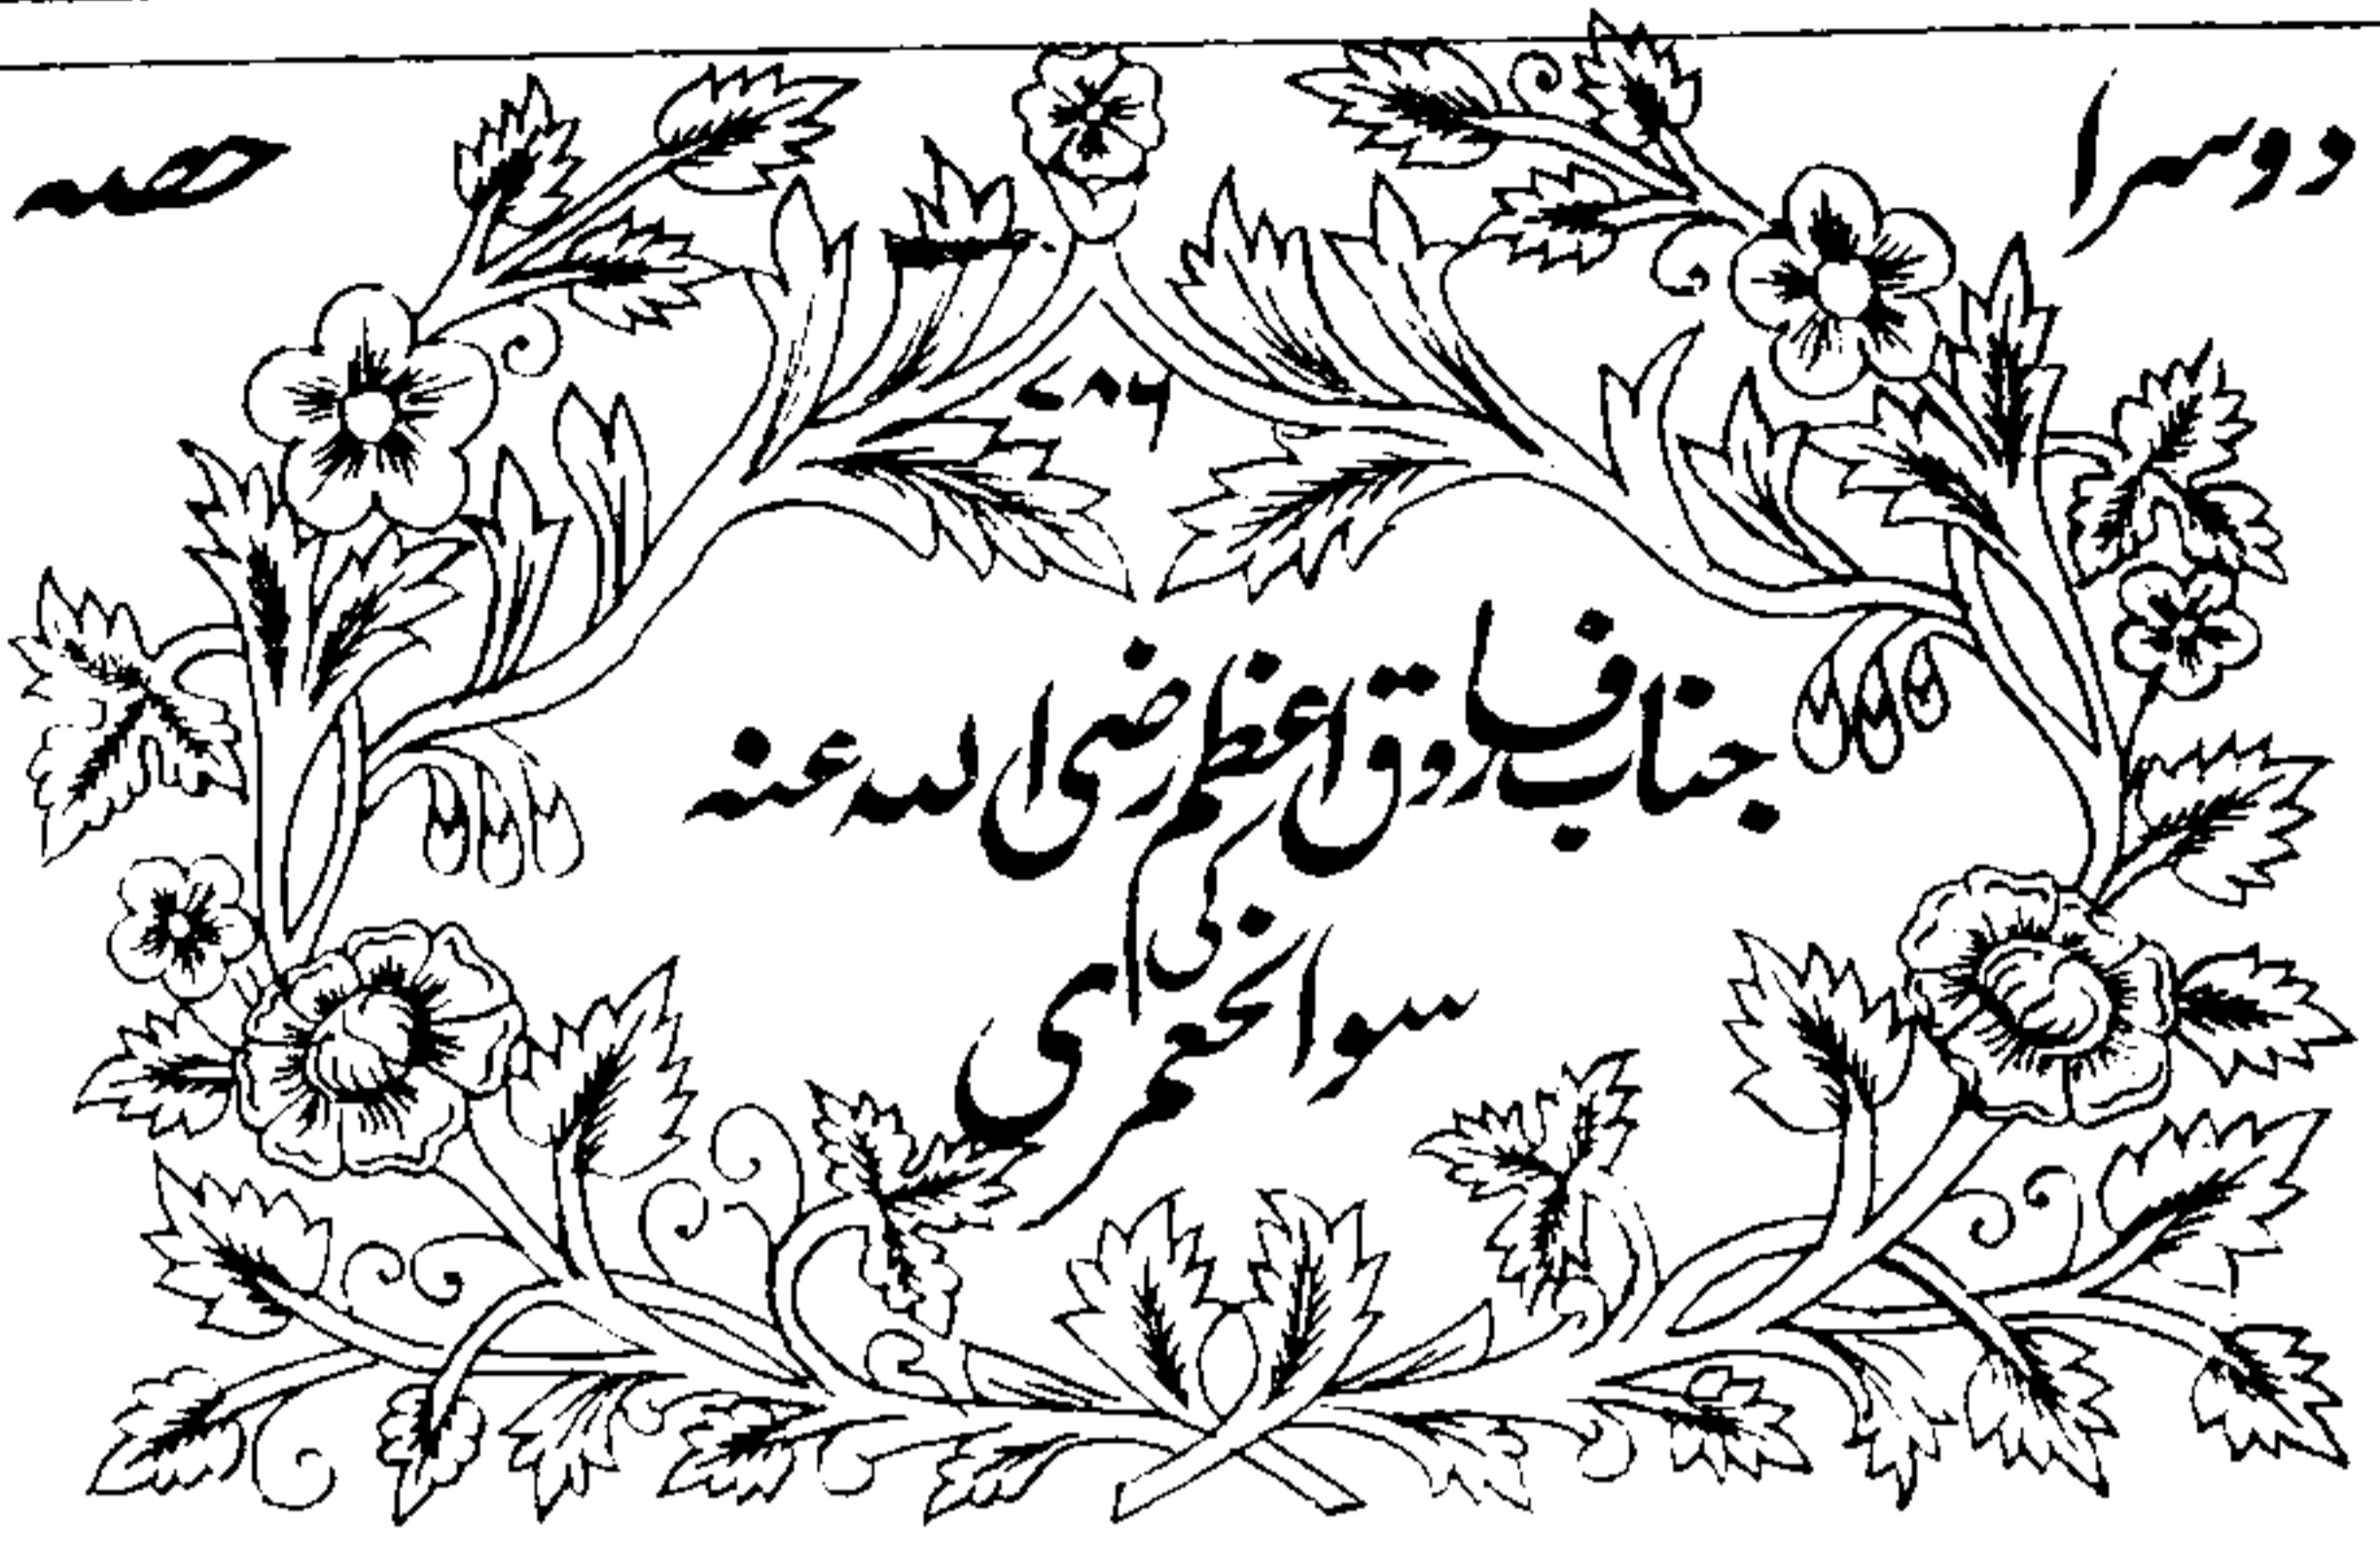 دوسرا حصہ
۷۸۶
جناب فاروق اعظم رضی اللہ عنہ
کی
سوانحعمری